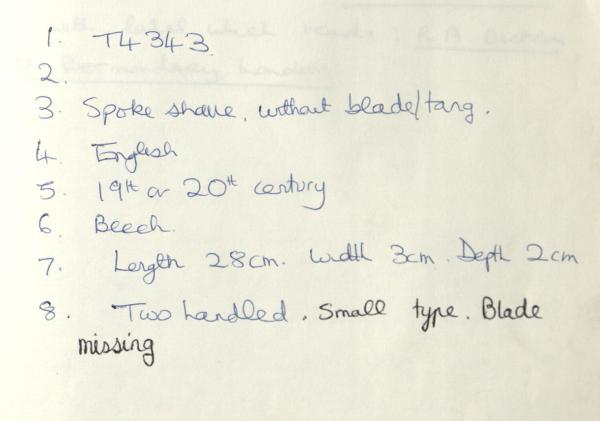 1. T4343
2.
3. Spoke shave, without blade/tang.
4. English
5. 19th or 20th century
6. Beech.
7. Length 28cm. Width 3cm. Depth 2cm
8. Two handled. Small type. Blade
missing